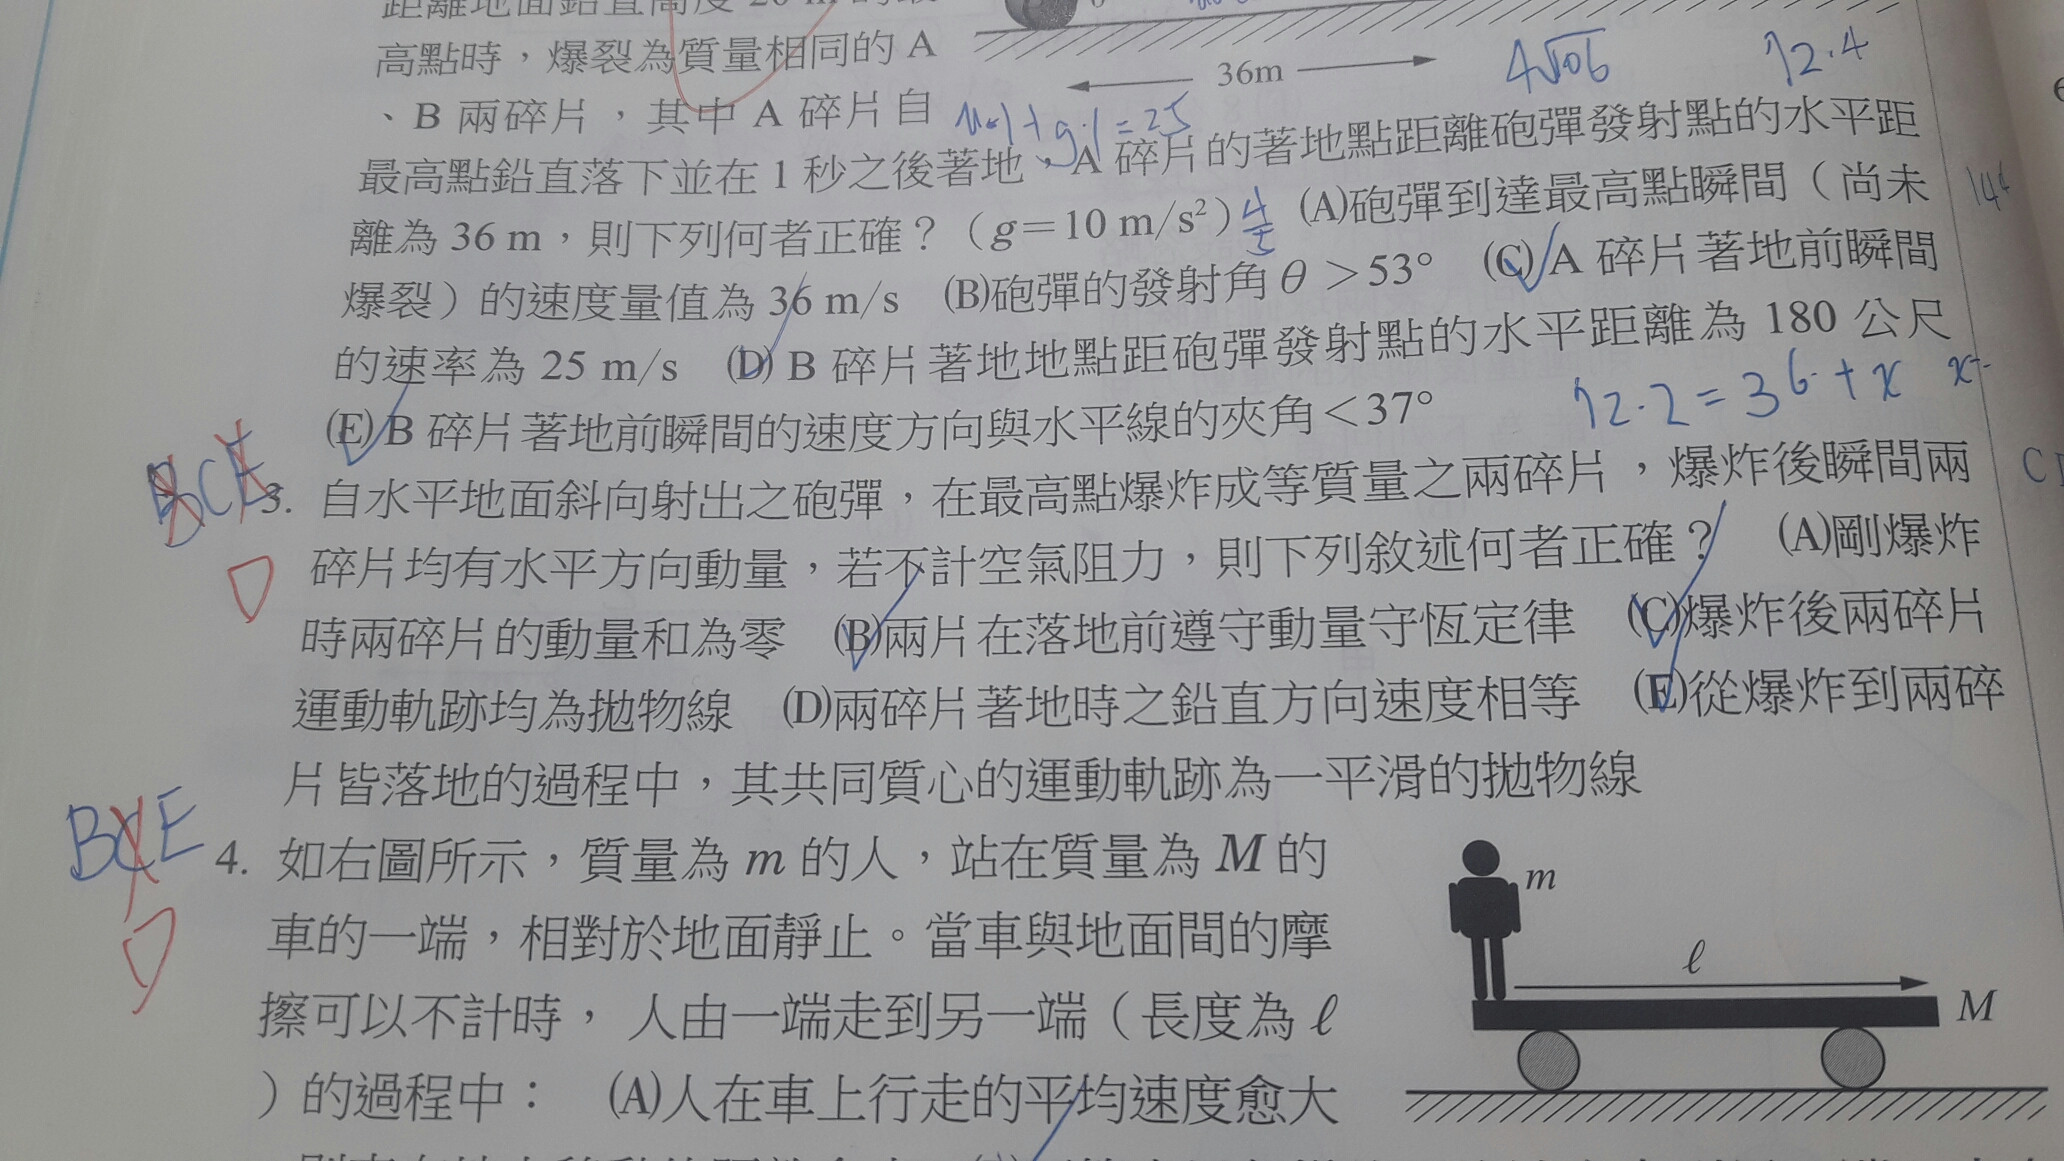 距離地面鉛直高度 20 m 的最
高點時，爆裂為質量相同的 A
36m
4√06
72.4
、B 兩碎片，其中 A 碎片自
最高點鉛直落下並在 1 秒之後著地，A 碎片的著地點距離砲彈發射點的水平距
離為 36 m，則下列何者正確？（g＝10 m/s²） (A)砲彈到達最高點瞬間（尚未
爆裂）的速度量值為 36 m/s (B)砲彈的發射角 θ＞53° (C) A 碎片著地前瞬間
的速率為 25 m/s (D) B 碎片著地地點距砲彈發射點的水平距離為 180 公尺
(E) B 碎片著地前瞬間的速度方向與水平線的夾角＜37°
72.2=36+x x=
BCE
3. 自水平地面斜向射出之砲彈，在最高點爆炸成等質量之兩碎片，爆炸後瞬間兩
碎片均有水平方向動量，若不計空氣阻力，則下列敘述何者正確？ (A)剛爆炸
時兩碎片的動量和為零 (B)兩片在落地前遵守動量守恆定律 (C)爆炸後兩碎片
運動軌跡均為拋物線 (D)兩碎片著地時之鉛直方向速度相等 (E)從爆炸到兩碎
片皆落地的過程中，其共同質心的運動軌跡為一平滑的拋物線
BCE
4. 如右圖所示，質量為 m 的人，站在質量為 M 的
車的一端，相對於地面靜止。當車與地面間的摩
擦可以不計時， 人由一端走到另一端（長度為 ℓ
）的過程中： (A)人在車上行走的平均速度愈大
m
ℓ
M